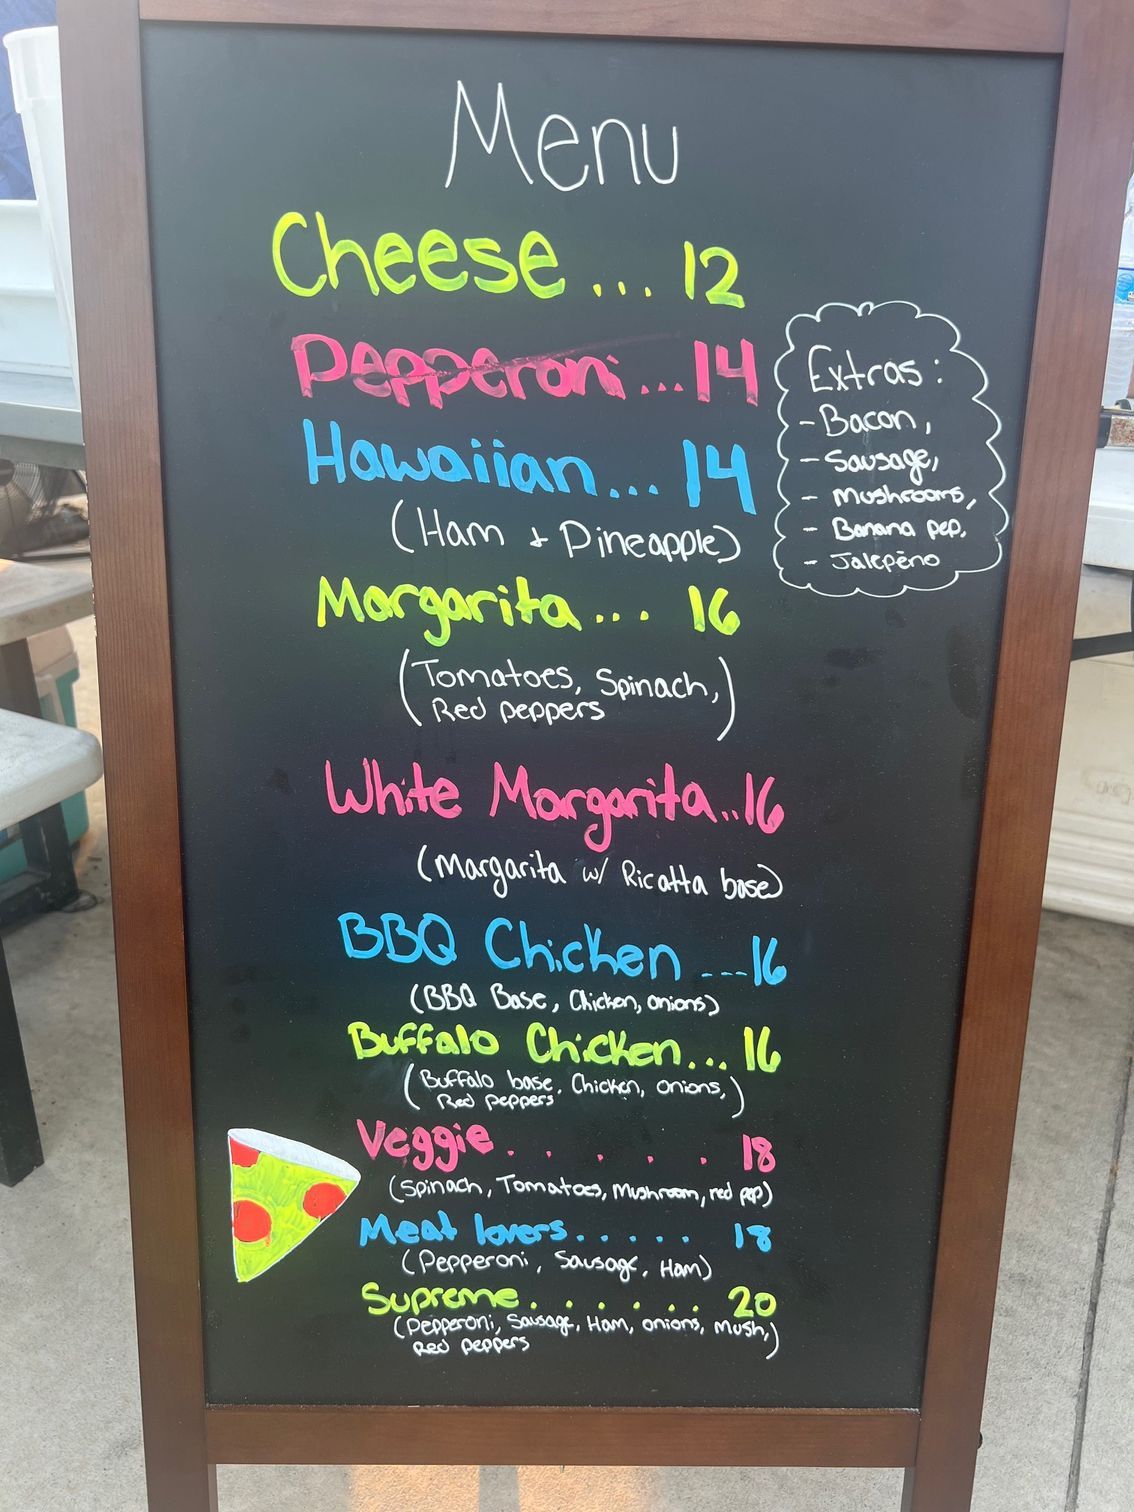 Menu
Cheese... 12
Pepperoni...14
Hawaiian... 14
(Ham + Pineapple)
Margarita... 16
(Tomatoes, Spinach,
Red peppers)
White Margarita..16
(Margarita w/ Ricatta base)
BBQ Chicken ---16
(BBQ Base, Chicken, onions)
Buffalo Chicken... 16
(Buffalo base, Chicken, onions,
Red peppers)
Veggie. . . . . 18
(Spinach, Tomatoes, Mushroom, red pep)
Meat lovers...... 18
(Pepperoni, Sausage, Ham)
Supreme....... 20
(Pepperoni, Sausage, Ham, onions, Mush,
Red peppers)
Extras:
- Bacon,
- Sausage,
- Mushrooms,
- Banana pep,
- Jalepēno